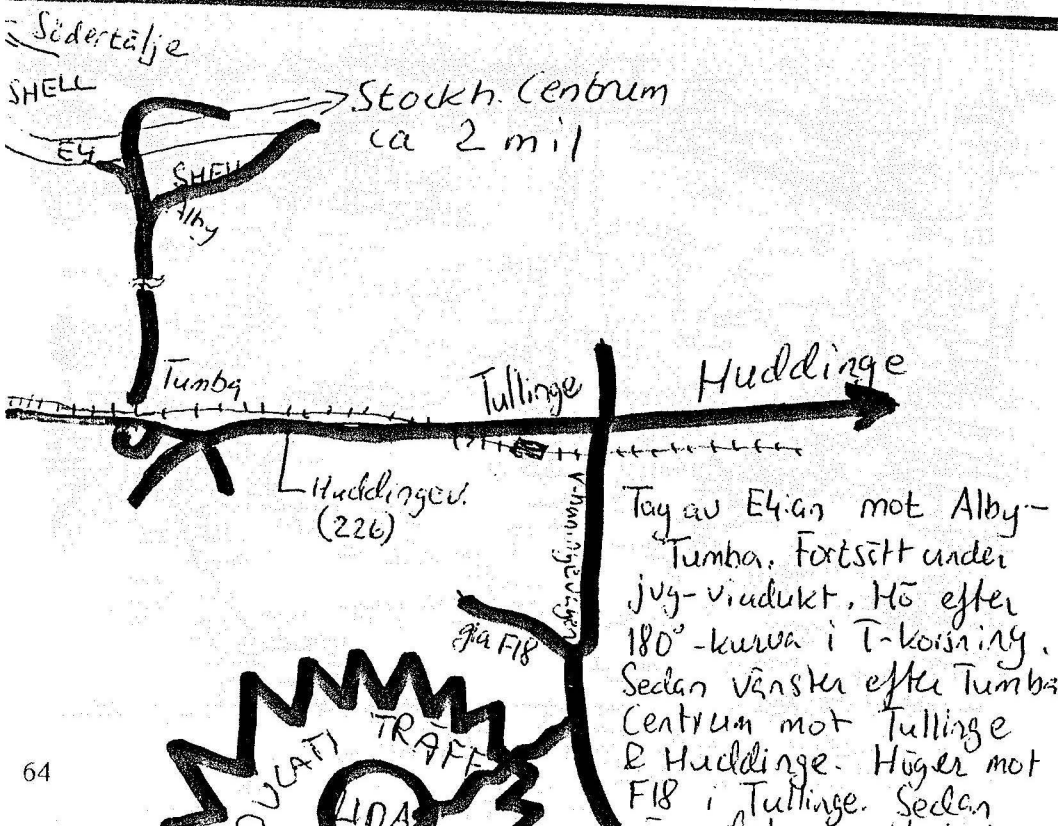 Södertälje
SHELL
→ Stockh. Centrum
ca 2 mil
E4
SHELL
Alby
Tumba
Tullinge
Huddinge
Huddingev.
(226)
gla F18
Tag av E4:an mot Alby-
Tumba. Fortsätt under
jvg-viadukt. Hö efter
180°-kurva i T-korsning.
Sedan vänster efter Tumba
Centrum mot Tullinge
& Huddinge. Höger mot
F18 i Tullinge. Sedan
DUCATI TRÄFF
64